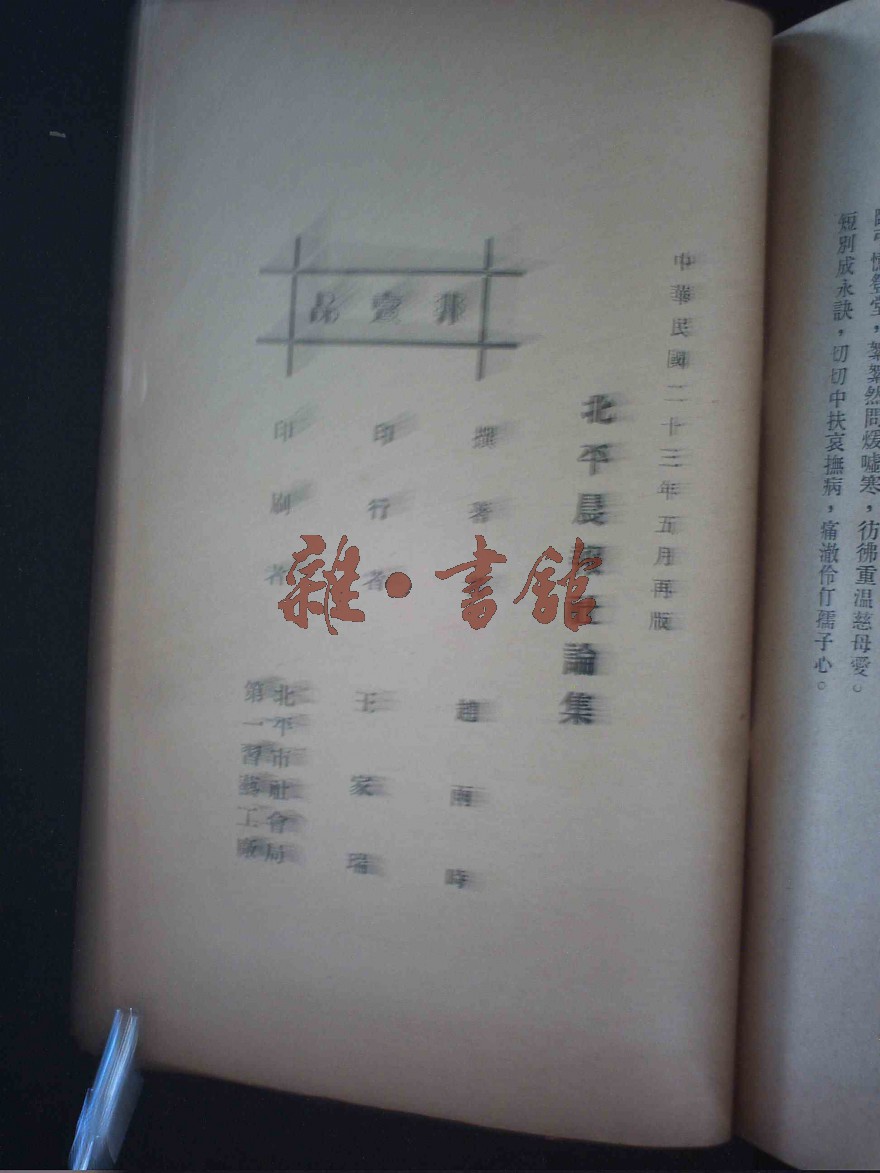 然問煖噓寒，彷彿重溫慈母愛。
短別成永訣，切切中扶哀撫病，痛澈伶仃孺子心。
中華民國二十三年五月再版
北平晨報社論集
非賣品
撰著
趙雨時
印行者
王家瑞
印刷者
北平市社會局
第一習藝工廠
雜·書館